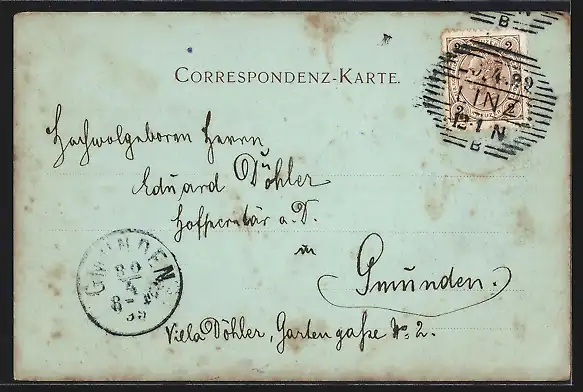 CORRESPONDENZ-KARTE.
Hochwolgeboren Herrn
Eduard Döhler
Hofsecretär a. D.
in
Gmunden.
Villa Döhler, Gartengasse No. 2.
GMUNDEN
LINZ
B
B
2
2